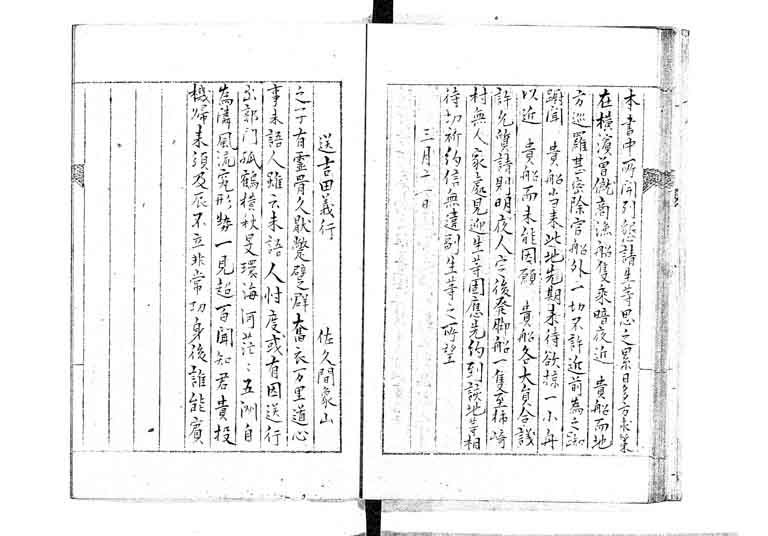 本書中所開列懇請生等思之累日多方求策
在横濱曽僦商漁船隻乗暗夜近　貴船而地
方巡羅甚密除官船外一切不許近前為之踟
蹰聞　貴船当来此地先期来待欲掠一小舟
以近　貴船而未能因願　貴船各大員合議
許允質請則明夜人定後発脚船一隻至柿崎
村無人家之處見迎生等固應先約到該地等相
待切祈約信無違副生等之所望
三月二一日
送吉田義行
佐久間象山
之子有霊骨久厭蹩躄群奮衣万里道心
事未語人雖云未語人忖度或有因送行
出郭門孤鶴横秋旻環海何茫々五洲自
為隣周流究形勢一見超百聞知君貴投
機帰来須及辰不立非常功身後誰能賓